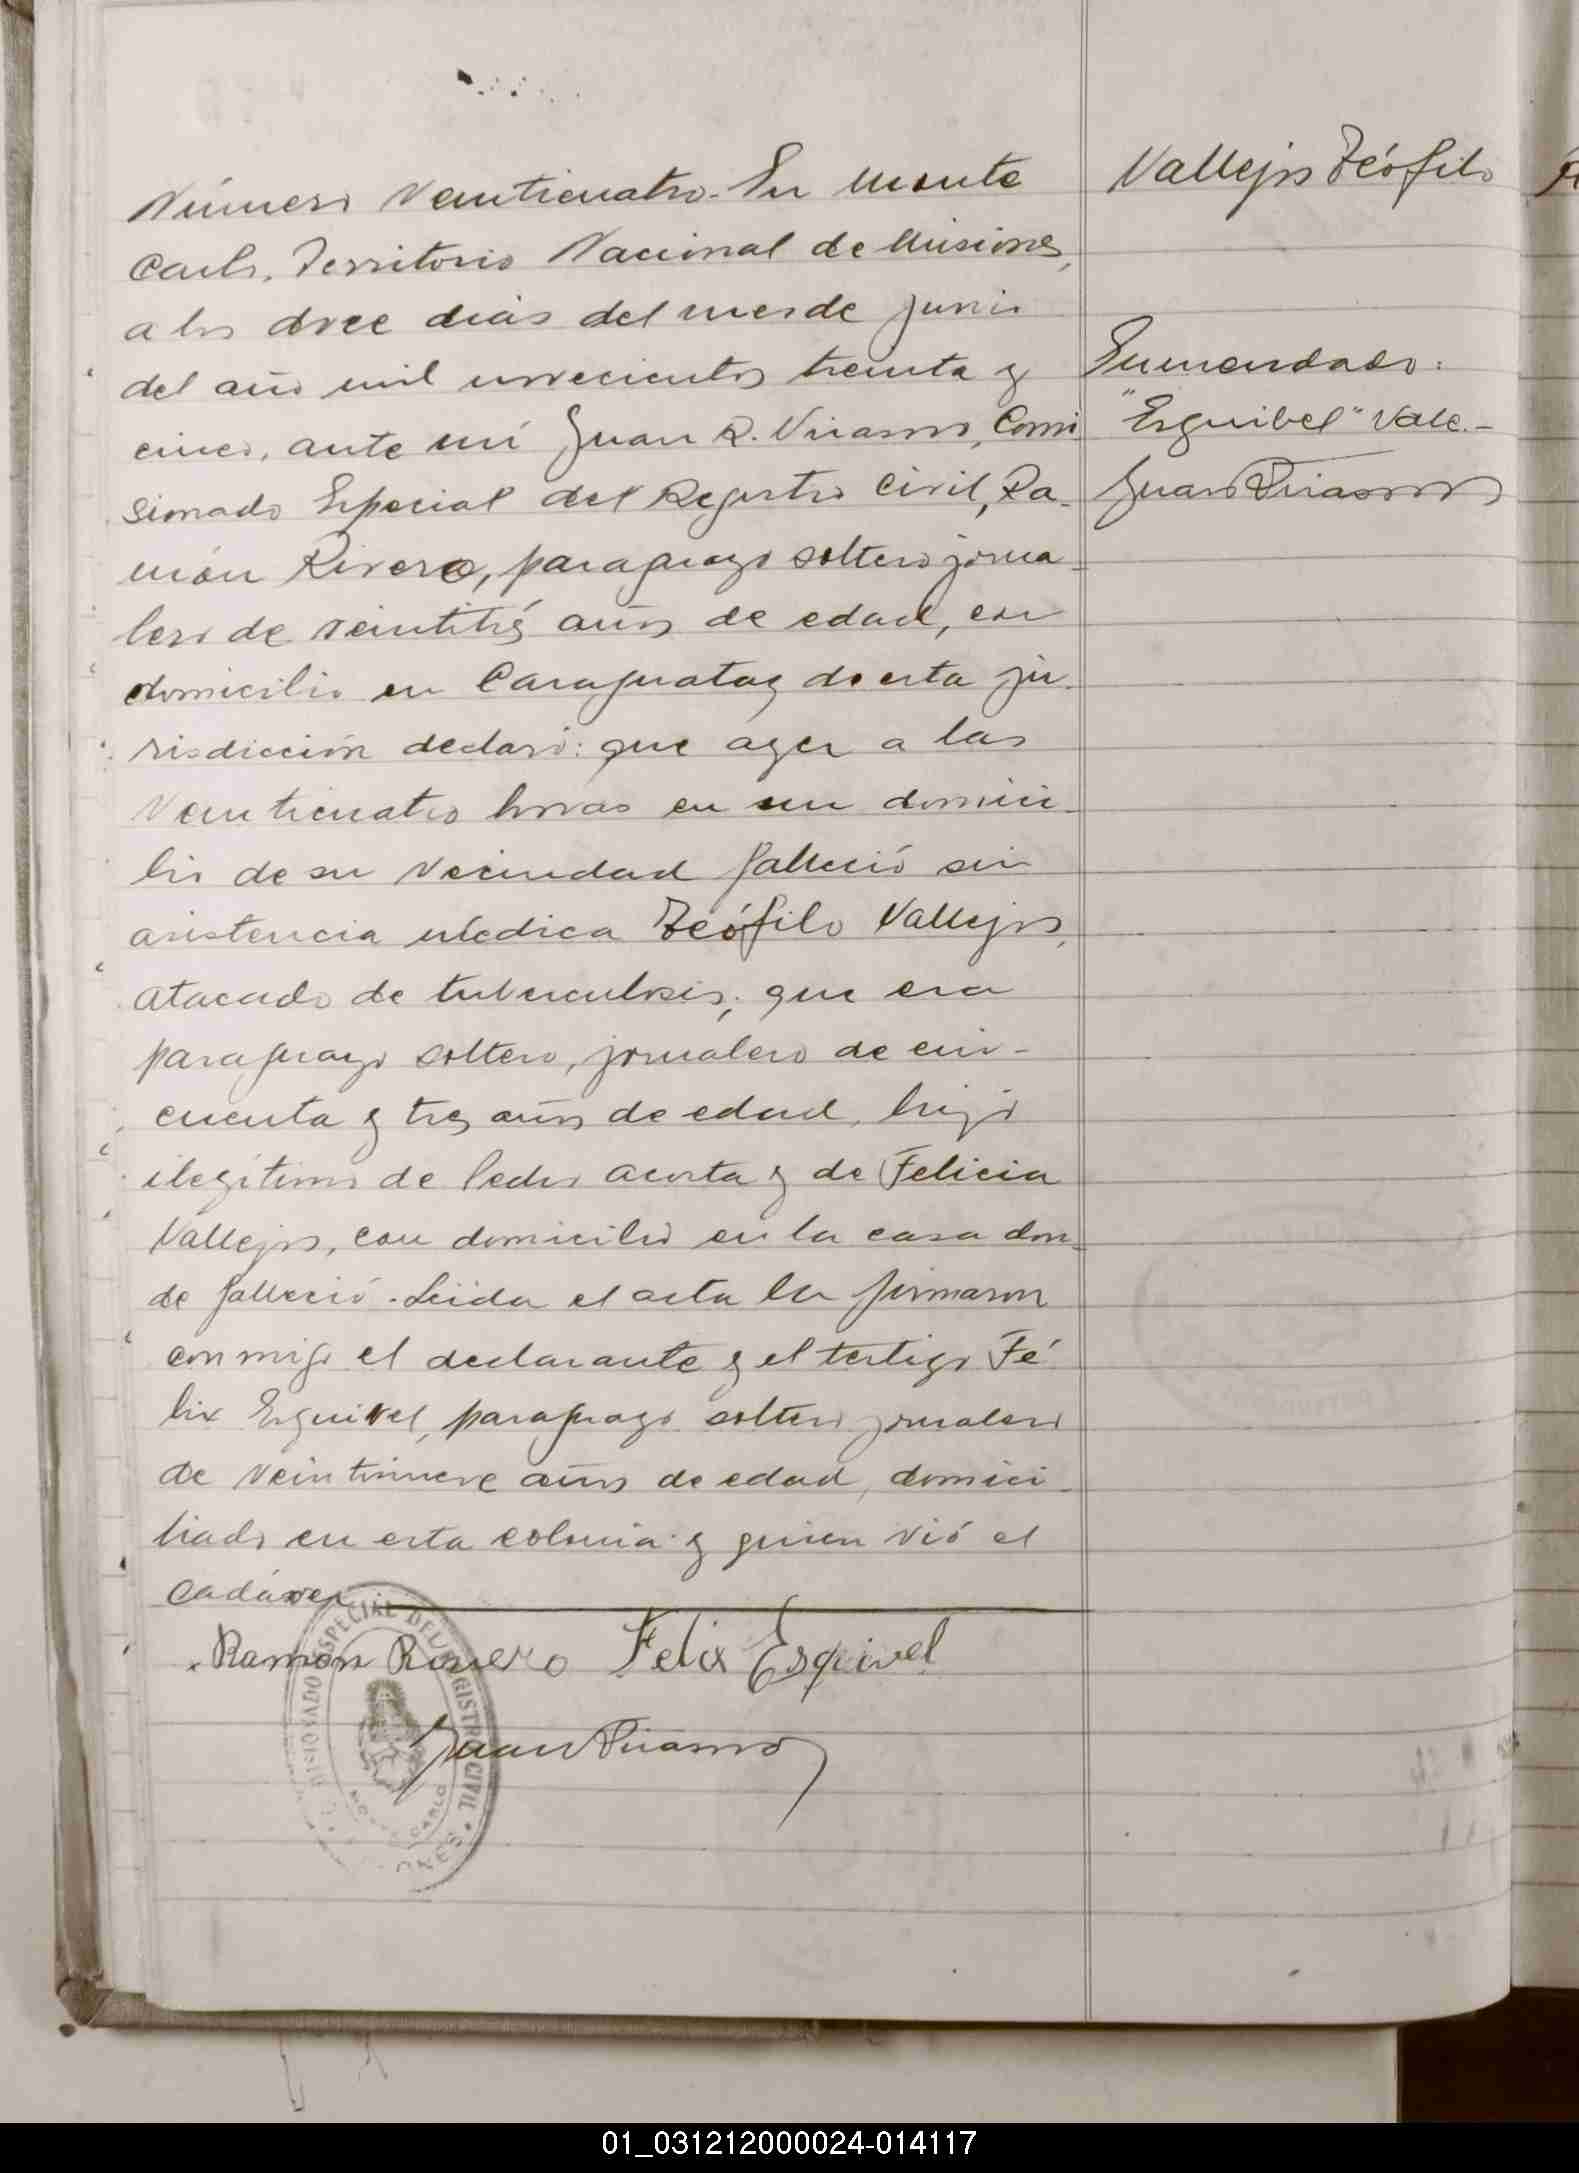 Número veinticuatro. En Monte
Carlo, Territorio Nacional de Misiones,
a los doce dias del mes de junio
del año mil novecientos treinta y
cinco, ante mí Juan R. Virasoro, Comi
sionado Especial del Registro Civil, Ra-
món Rivero, paraguayo soltero jorna-
lero de veintitrés años de edad, con
domicilio en Caraguatay de esta ju-
risdicción declaró: que ayer a las
veinticuatro horas en un domici-
lio de su vecindad falleció sin
asistencia médica Teófilo Vallejos,
atacado de tuberculosis, que era
paraguayo soltero, jornalero de cin-
cuenta y tres años de edad, hijo
ilegítimo de Pedro Acosta y de Felicia
Vallejos, con domicilio en la casa don-
de falleció. Leída el acta la firmaron
conmigo el declarante y el testigo Fé
lix Esquivel, paraguayo soltero jornalero
de veintinueve años de edad, domici-
liado en esta colonia y quien vió el
cadáver
Ramón Rivero Felix Esquivel
Juan Virasoro
Vallejos Teófilo
Enmendado:
"Esquibel" Vale.-
Juan Virasoro
ESPECIAL DEL REGISTRO CIVIL
01_031212000024-014117